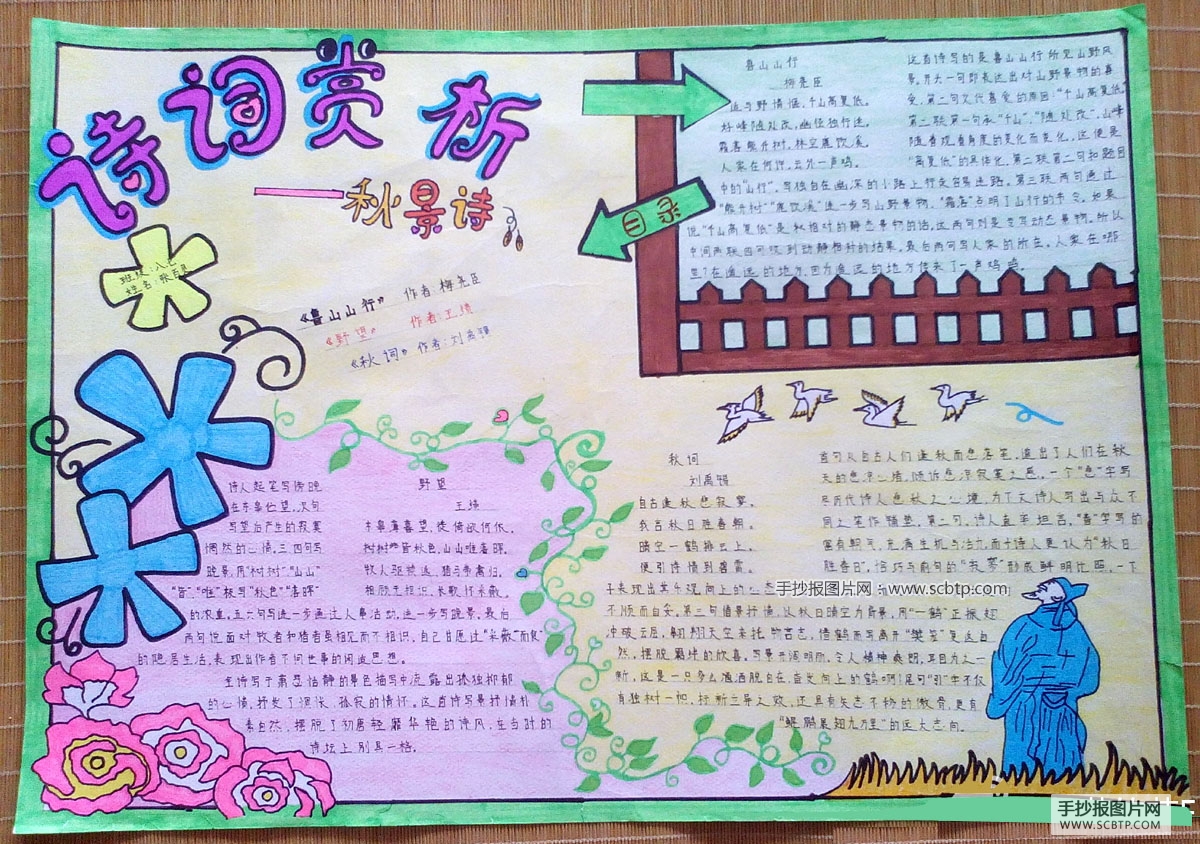 诗词赏析
——秋景诗
班级：八七
目录
《鲁山山行》 作者 梅尧臣
《野望》 作者：王绩
《秋词》 作者：刘禹锡
鲁山山行
梅尧臣
适与野情惬，千山高复低。
好峰随处改，幽径独行迷。
霜落熊升树，林空鹿饮溪。
人家在何许，云外一声鸡。
这首诗写的是鲁山山行所见山野风
景，开头一句即表达出对山野景物的喜
爱，第二句交代喜爱的原因："千山高复低。
第二联第一句承"千山"，"随处改"，山峰
随着观看角度的变化而变化，这便是
"高复低"的具体化，第二联第二句扣题目
中的"山行"，写独自在幽深的小路上行走容易迷路。第三联两句通过
"熊升树""鹿饮溪"进一步写山野景物，"霜落"点明了山行的季令。如果
说"千山高复低"是秋相对的静态景物的话，这两句则是主写动态景物。所以
中间两联四句收到动静相衬的结果，最后两句写人家的所在。人家在哪
里？在遥远的地方，因为遥远的地方传来了一声鸡鸣。
野望
王绩
东皋薄暮望，徙倚欲何依。
树树皆秋色，山山唯落晖。
牧人驱犊返，猎马带禽归。
相顾无相识，长歌怀采薇。
诗人起笔写傍晚
在东皋伫望，次句
写望后产生的寂寞
惆然的心情。三四句写
晚景，用"树树""山山"
"皆"、"唯"极写"秋色""落晖"
的浓重。五六句写进一步画过人事活动，进一步写晚景，最后
两句说面对牧者和猎者虽相见而不相识，自己甘愿过"采薇"而食"
的隐居生活，表现出作者不问世事的闲逸思想。
全诗写于萧瑟恬静的景色描写中流露出孤独抑郁
的心情，抒发了惆怅、孤寂的情怀。这首诗写景抒情朴
素自然，摆脱了初唐轻靡华艳的诗风，在当时的
诗坛上别具一格。
秋词
刘禹锡
自古逢秋悲寂寥，
我言秋日胜春朝。
晴空一鹤排云上，
便引诗情到碧霄。
首句从自古人们逢秋而悲落笔，道出了人们在秋
天的悲凉心绪，倾诉悲凉寂寞之感。一个"悲"字写
尽历代诗人悲秋之心境，为下文诗人写出与众不
同之笔作铺垫。第二句，诗人直率坦言，"春"字写的
富有朝气，充满生机与活力，而才诗人更认为"秋日
胜春日"，恰巧与前句的"寂寥"形成鲜明比照。一下
子表现出其乐观向上的心态
不顺而自妥。第三句借景抒情，以秋日晴空为背景，用"一鹤"正振翅
冲破云层，翱翔天空来托物言志，借鹤而写离开"樊笼"复返自
然，摆脱羁绊的欣喜。写景开阔明朗，令人精神爽朗，耳目为之一
新，这是一只多么潇洒脱自在，奋发向上的鹤啊！尾句"引"字不仅
有独树一帜，标新立异之效，还具有矢志不移的傲骨，更有
"鲲鹏展翅九万里"的远大志向。
手抄报图片网：www.scbtp.com
手抄报图片网
WWW.SCBTP.COM